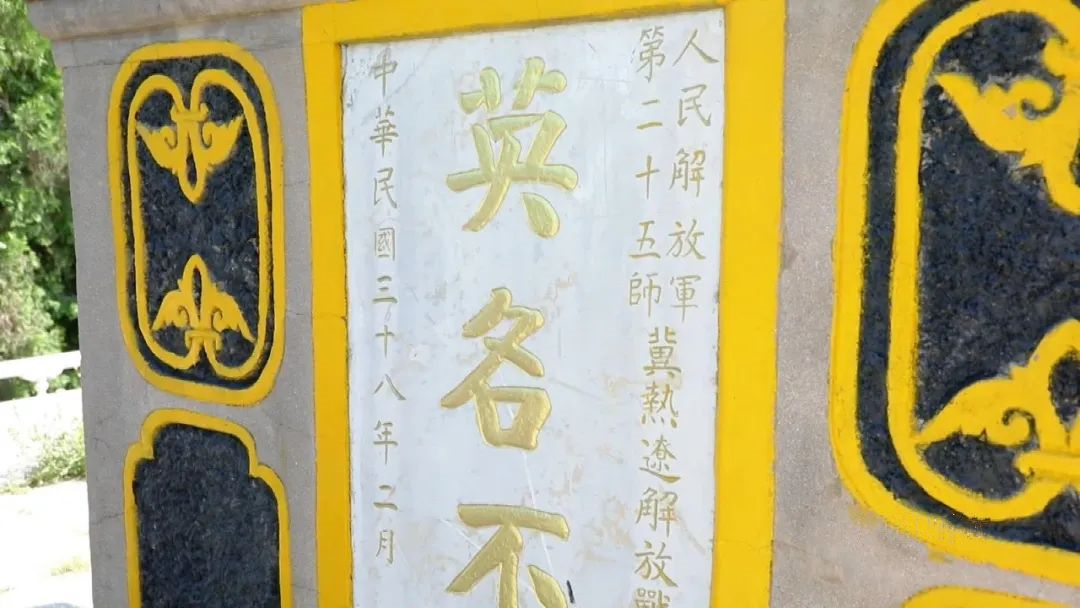 人民解放軍
第二十五師
冀熱遼解放戰
英名不
中華民國三十八年二月